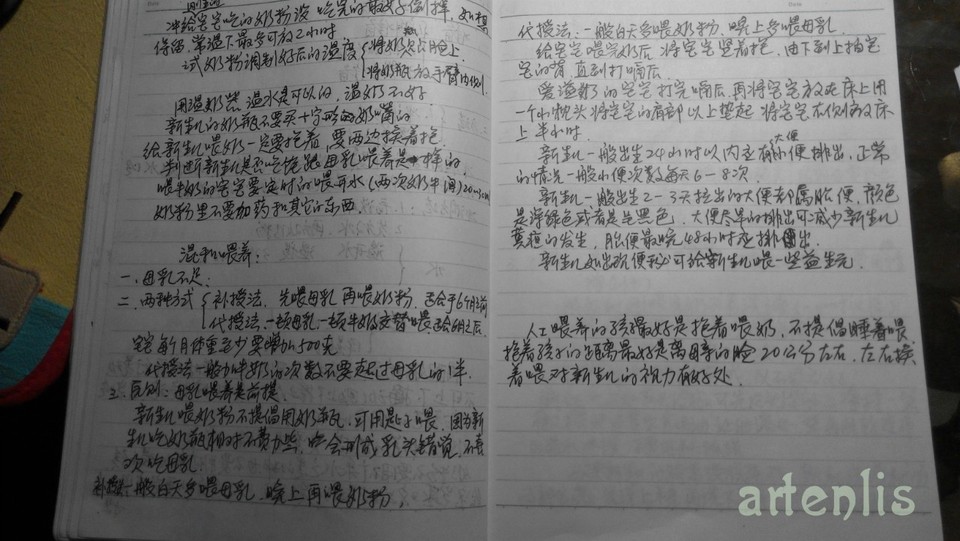 冲给宝宝吃的奶粉没吃完的最好倒掉,如想
保留,常温下最多可放2小时
试奶粉调制好后的温度 将奶放脸上
将奶瓶放手臂内侧
用温奶器,温水是可以的,温奶不好
新生儿的奶瓶不要买十字形的奶嘴的
给新生儿喂奶一定要抱着,要两边换着抱
判断新生儿是否吃饱跟母乳喂养是一样的.
喂牛奶的宝宝要定时的喂开水(两次奶中间)20-30ml
奶粉里不要加药和其它的东西.
混和喂养:
一.母乳不足:
二.两种方式 补授法,先喂母乳再喂奶粉,适合于6个月之前
代授法,一顿母乳一顿牛奶交替喂适合6月之后
宝宝每个月体重至少要增加500克
代授法一般加牛奶的次数不要超过母乳的1半
三.原则:母乳喂养是前提
新生儿喂奶粉不提倡用奶瓶,可用匙子喂,因为新
生儿吃奶瓶相对不费力些,也会形成乳头错觉,不喜
欢吃母乳
补授法一般白天多喂母乳,晚上再喂奶粉,
代授法:一般白天多喂奶粉,晚上多喂母乳
给宝宝喂完奶后,将宝宝竖着抱,由下到上拍宝
宝的背,直到打嗝后
爱溢奶的宝宝打完嗝后,再将宝宝放在床上用
一个小枕头将宝宝的肩部以上垫起,将宝宝右侧放床
上半小时.
大便
新生儿一般出生24小时以内应有小便排出,正常
的情况一般小便次数每天6-8次.
新生儿一般出生2-3天拉出的大便都属胎便,颜色
是深绿色或者是黑色,大便尽早的排出可减少新生儿
黄疸的发生,胎便最晚48小时应排出.
新生儿如出现便秘可给新生儿喂一些益生元.
人工喂养的孩子最好是抱着喂奶,不提倡睡着喂,
抱着孩子的距离最好是离母亲的脸20公分左右,左右换
着喂对新生儿的视力有好处.
artenlis